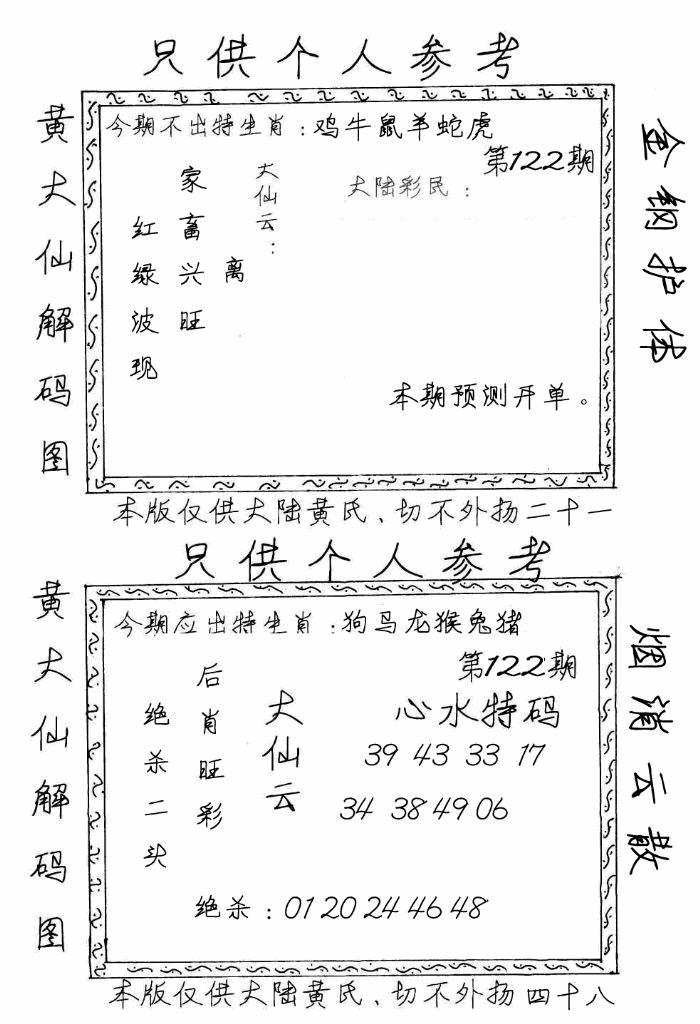 只供个人参考
黄大仙解码图
今期不出特生肖：鸡牛鼠羊蛇虎
第122期
金钢护体
大仙云：
大陆彩民：
家畜兴旺
离
红绿波现
本期预测开单。
本版仅供大陆黄氏、切不外扬二十一
只供个人参考
黄大仙解码图
今期应出特生肖：狗马龙猴兔猪
第122期
烟消云散
大仙云
后肖旺彩
绝杀二头
心水特码
39 43 33 17
34 38 49 06
绝杀：01 20 24 46 48
本版仅供大陆黄氏、切不外扬四十八